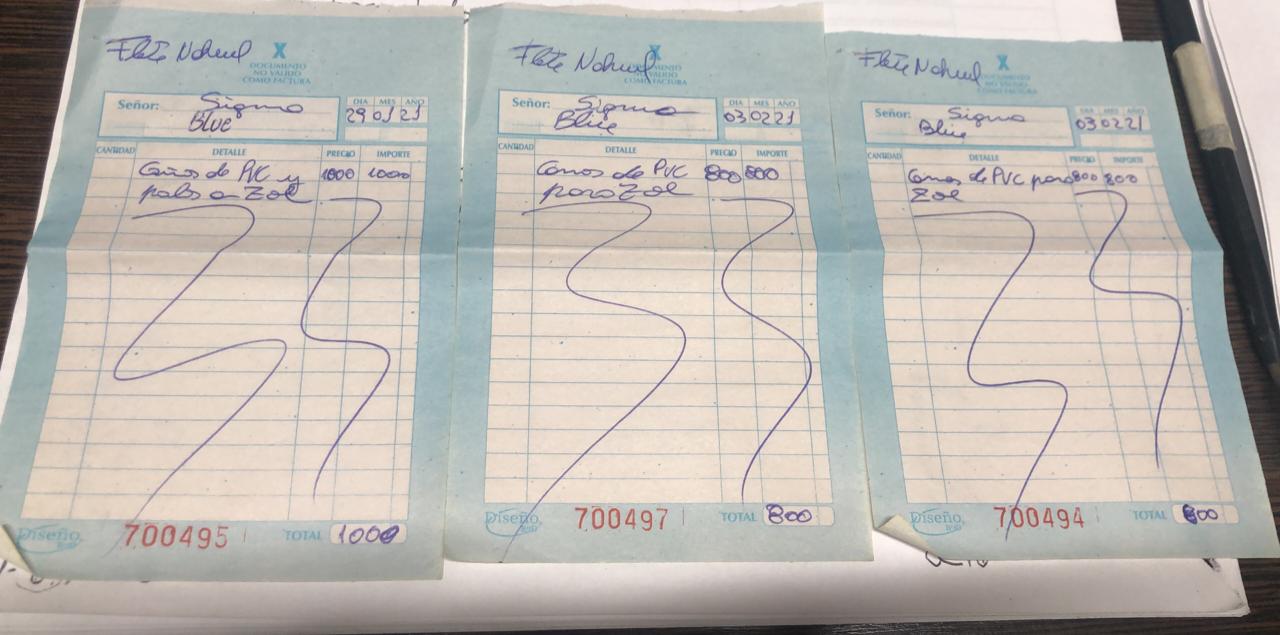 Flete Nahuel
X
DOCUMENTO
NO VALIDO
COMO FACTURA
Señor: Sigma
Blue
DIA MES AÑO
29 01 21
CANTIDAD DETALLE PRECIO IMPORTE
Caños de PVC y 1000 1000
palos a Zoe
Diseño
700495
TOTAL 1000
Flete Nahuel
X
DOCUMENTO
NO VALIDO
COMO FACTURA
Señor: Sigma
Blue
DIA MES AÑO
03 02 21
CANTIDAD DETALLE PRECIO IMPORTE
Canos de PVC 800 800
para Zoe
Diseño
700497
TOTAL 800
Flete Nahuel
X
DOCUMENTO
NO VALIDO
COMO FACTURA
Señor: Sigma
Blue
DIA MES AÑO
03 02 21
CANTIDAD DETALLE PRECIO IMPORTE
Canos de PVC para 800 800
Zoe
Diseño
700494
TOTAL 800